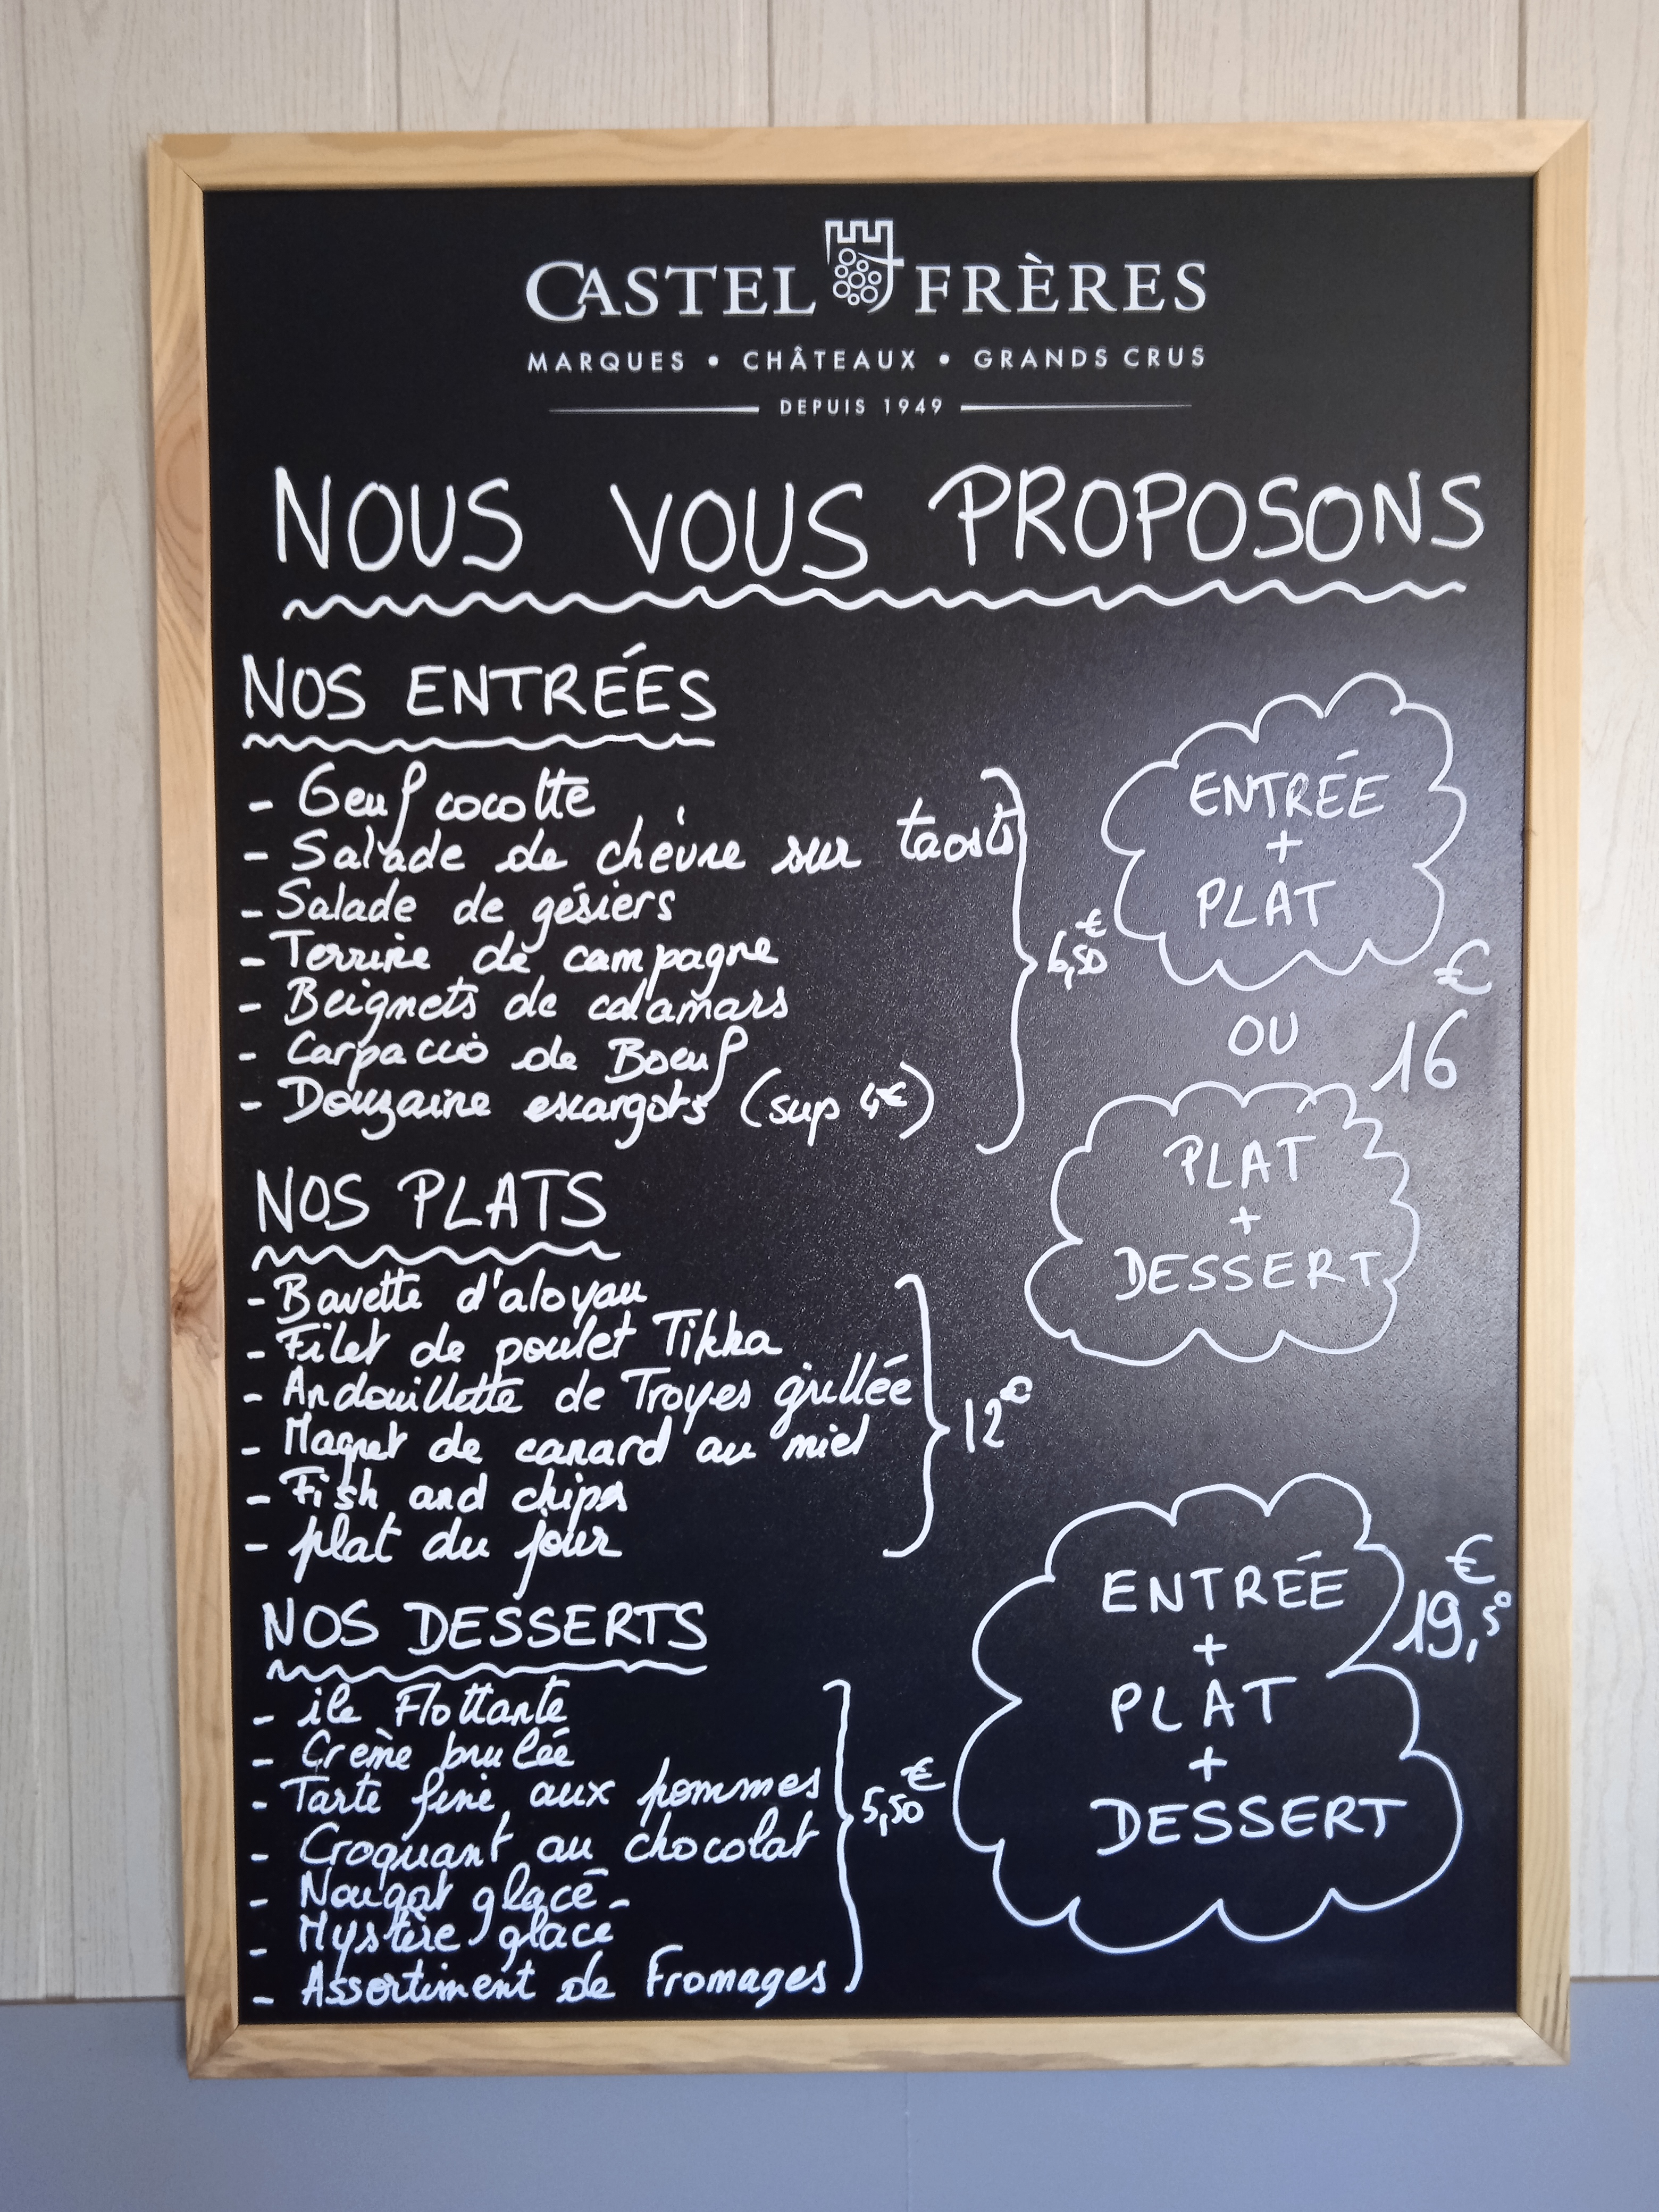 CASTEL FRÈRES
MARQUES • CHÂTEAUX • GRANDS CRUS
DEPUIS 1949
NOUS VOUS PROPOSONS
NOS ENTRÉES
- Oeuf cocotte
- Salade de chèvre sur taosts
- Salade de gésiers
- Terrine de campagne
- Beignets de calamars
- Carpaccio de Boeuf
- Douzaine escargots (sup 4€)
6,50€
NOS PLATS
- Bavette d'aloyau
- Filet de poulet Tikka
- Andouillette de Troyes grillée
- Magret de canard au miel
- Fish and chips
- plat du jour
12€
NOS DESSERTS
- ile Flottante
- Crème brulée
- Tarte fine aux pommes
- Croquant au chocolat
- Nougat glacé
- Mystère glacé
- Assortiment de Fromages
5,50€
ENTRÉE
+
PLAT
OU
16€
PLAT
+
DESSERT
ENTRÉE
+
PLAT
+
DESSERT
19,50€